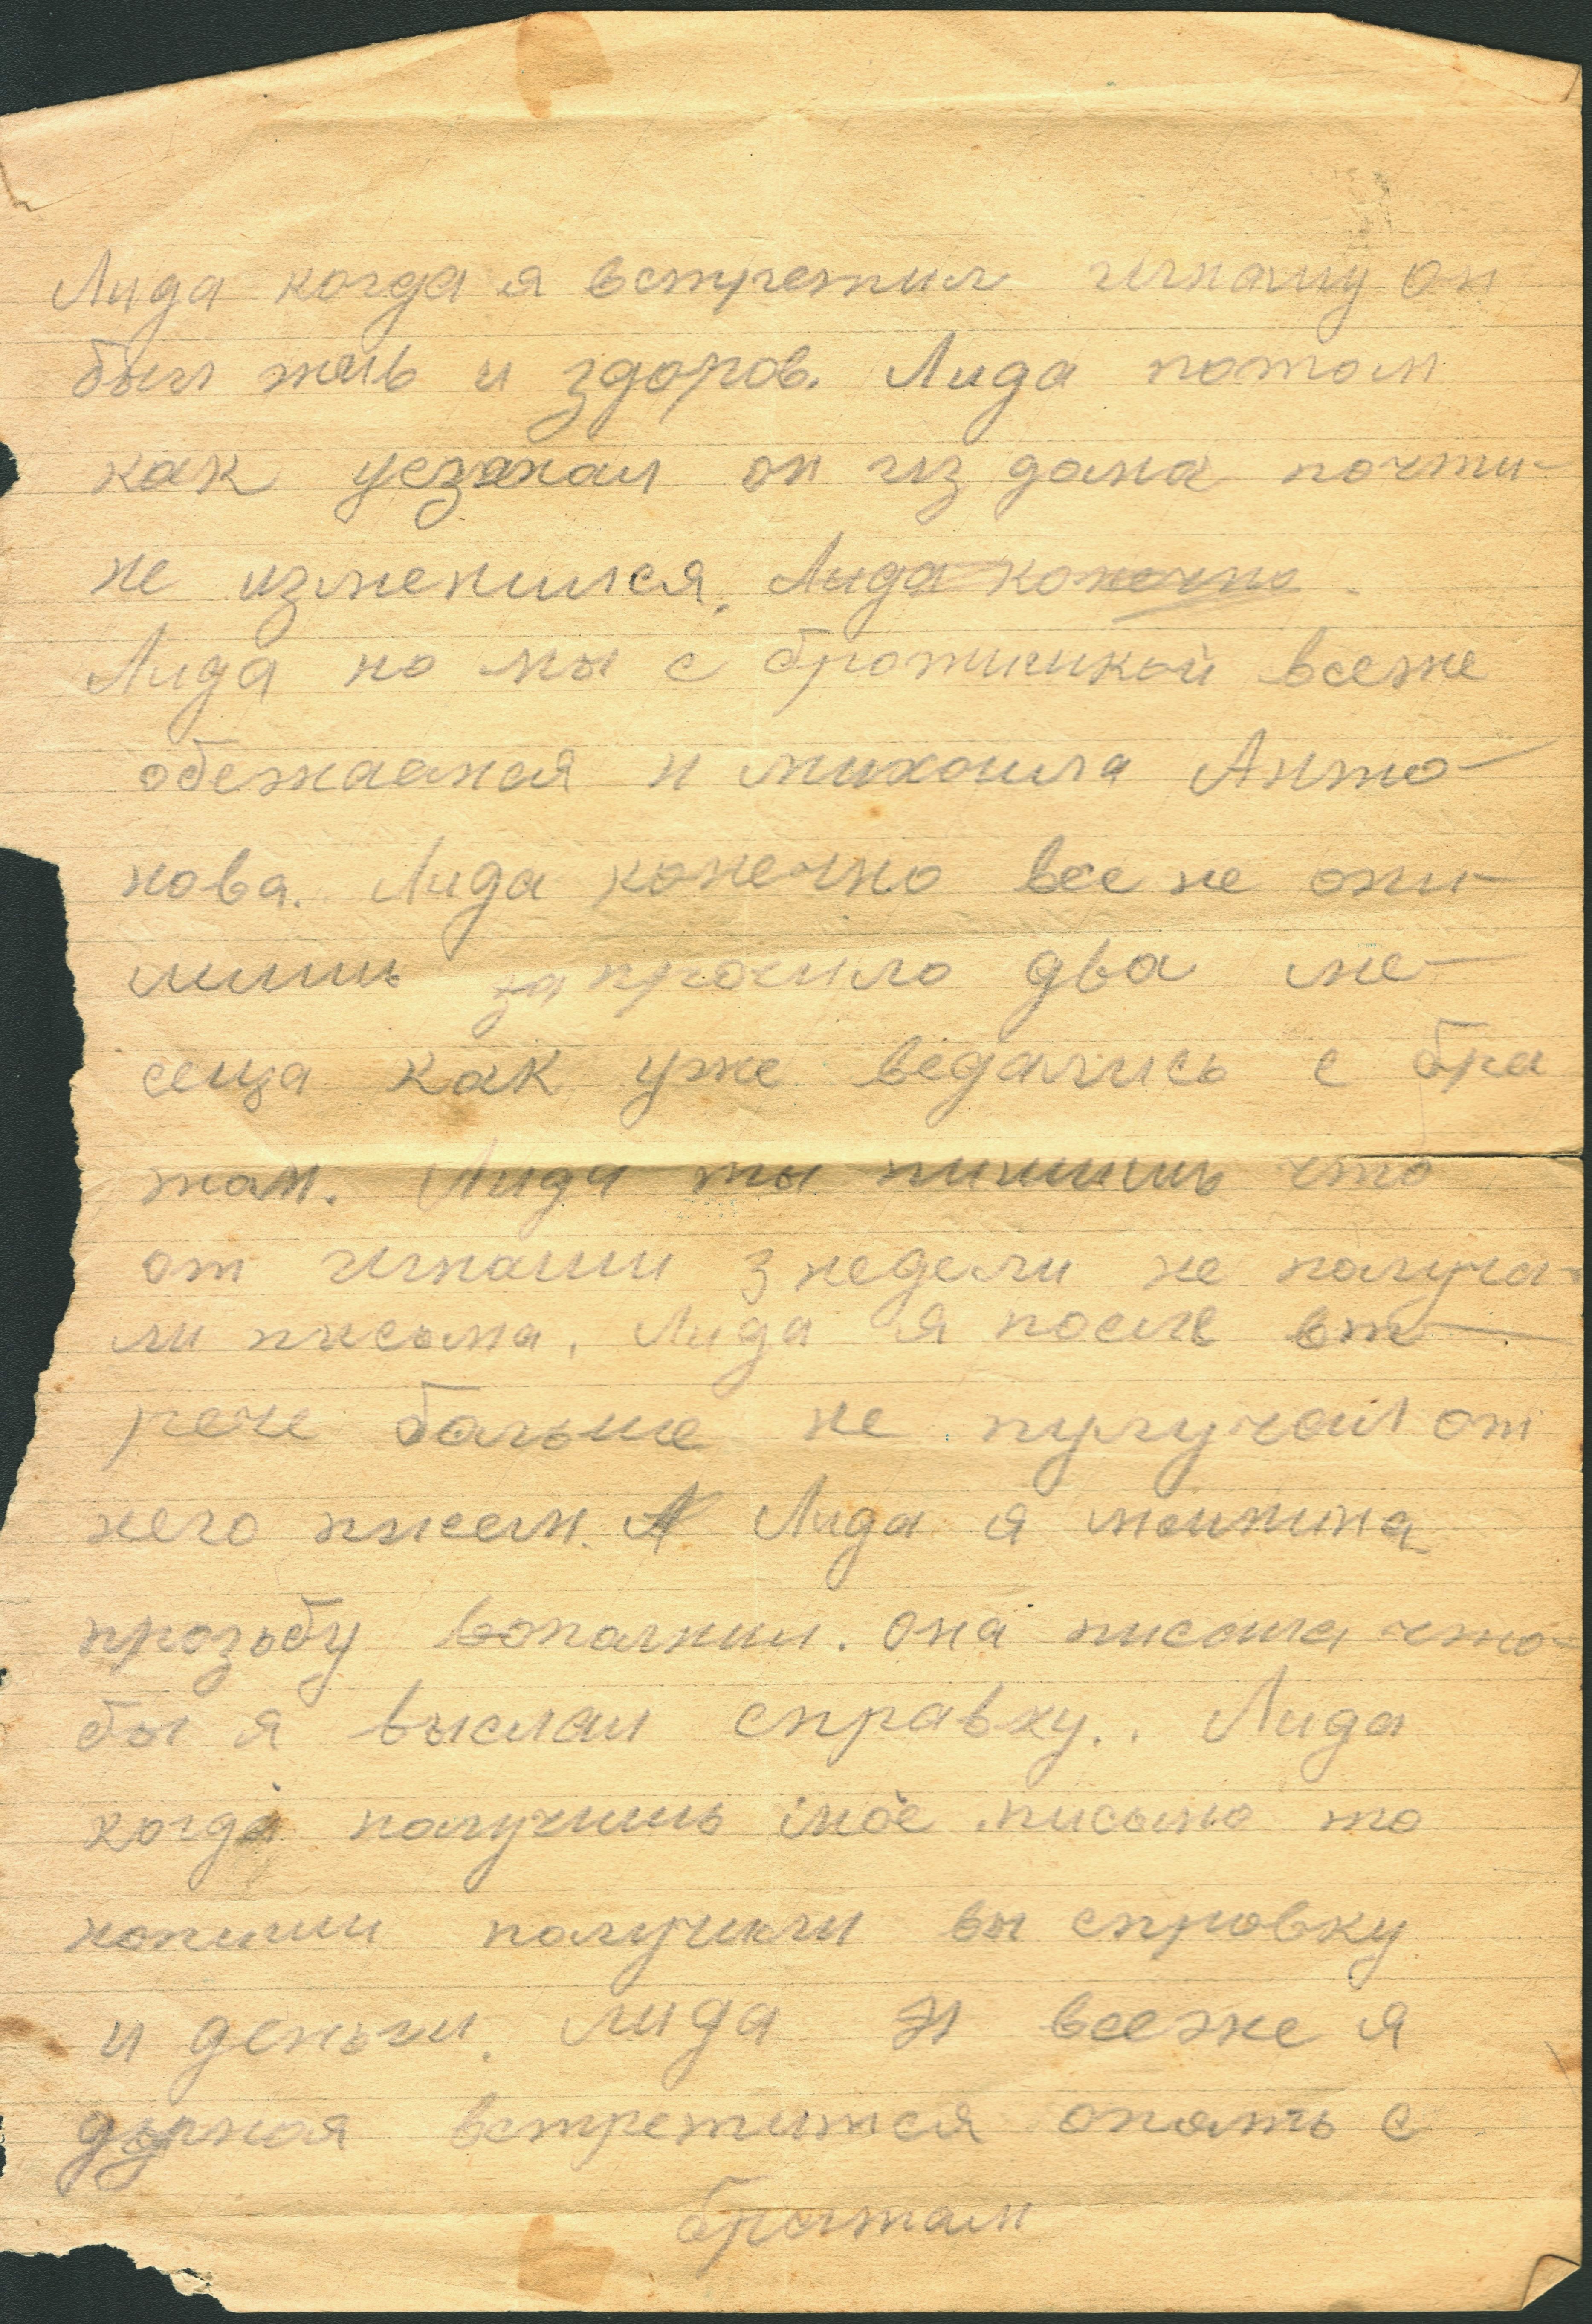 Лида когда я встретил игнашу он
был жив и здоров. Лида потом
как уезжал он из дома почти-
не изменился. Лида конечно
Лида но мы с братишкой всеже
и михаила Анто-
нова. Лида конечно все не
два ме-
сеца как уже ведались с бра
том. Лида ты пишишь что
от игнаши 3 недели не получа-
ли писема. Лида я после вт-
рече больше не пулучал от
него писем. Лида я
прозьбу вополнил. она писала что-
бы я выслал справку.. Лида
когда получишь мое письмо то
напиши получили вы справку
и деньги. лида я всеже я
встретится опять с
братом